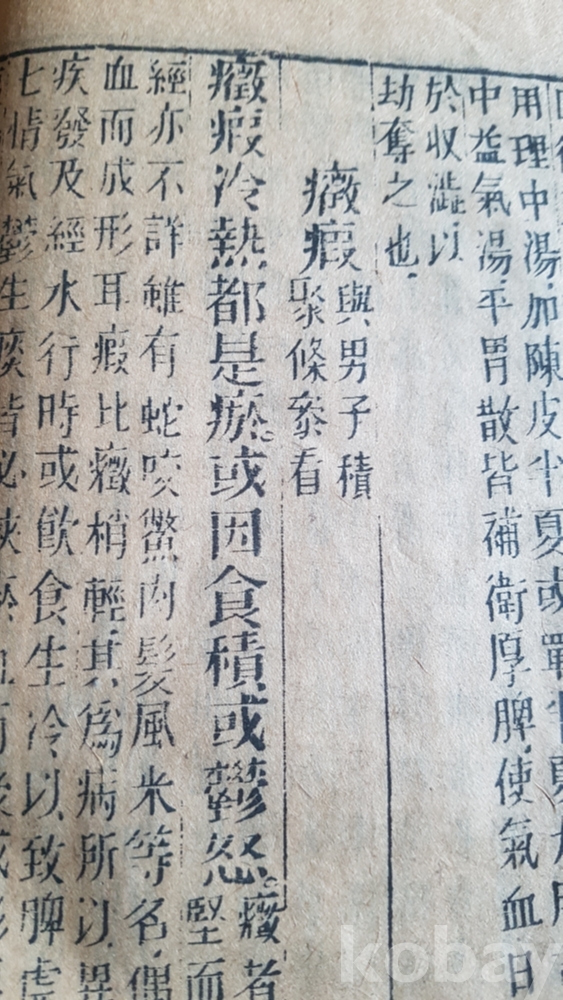 用理中湯加陳皮半夏或
中益氣湯平胃散皆補衛厚脾使氣血日
於收澁以
劫奪之也
癥瘕
與男子積
聚條參看
癥瘕冷熱都是瘀或因食積或鬱怒
癥者
堅而
經亦不詳雖有蛇咬鱉肉髮風米等名偶
血而成形耳瘕比癥梢輕其爲病所以異
疾發及經水行時或飲食生冷以致脾虛
七情氣鬱生痰皆必挾瘀血而
kobay